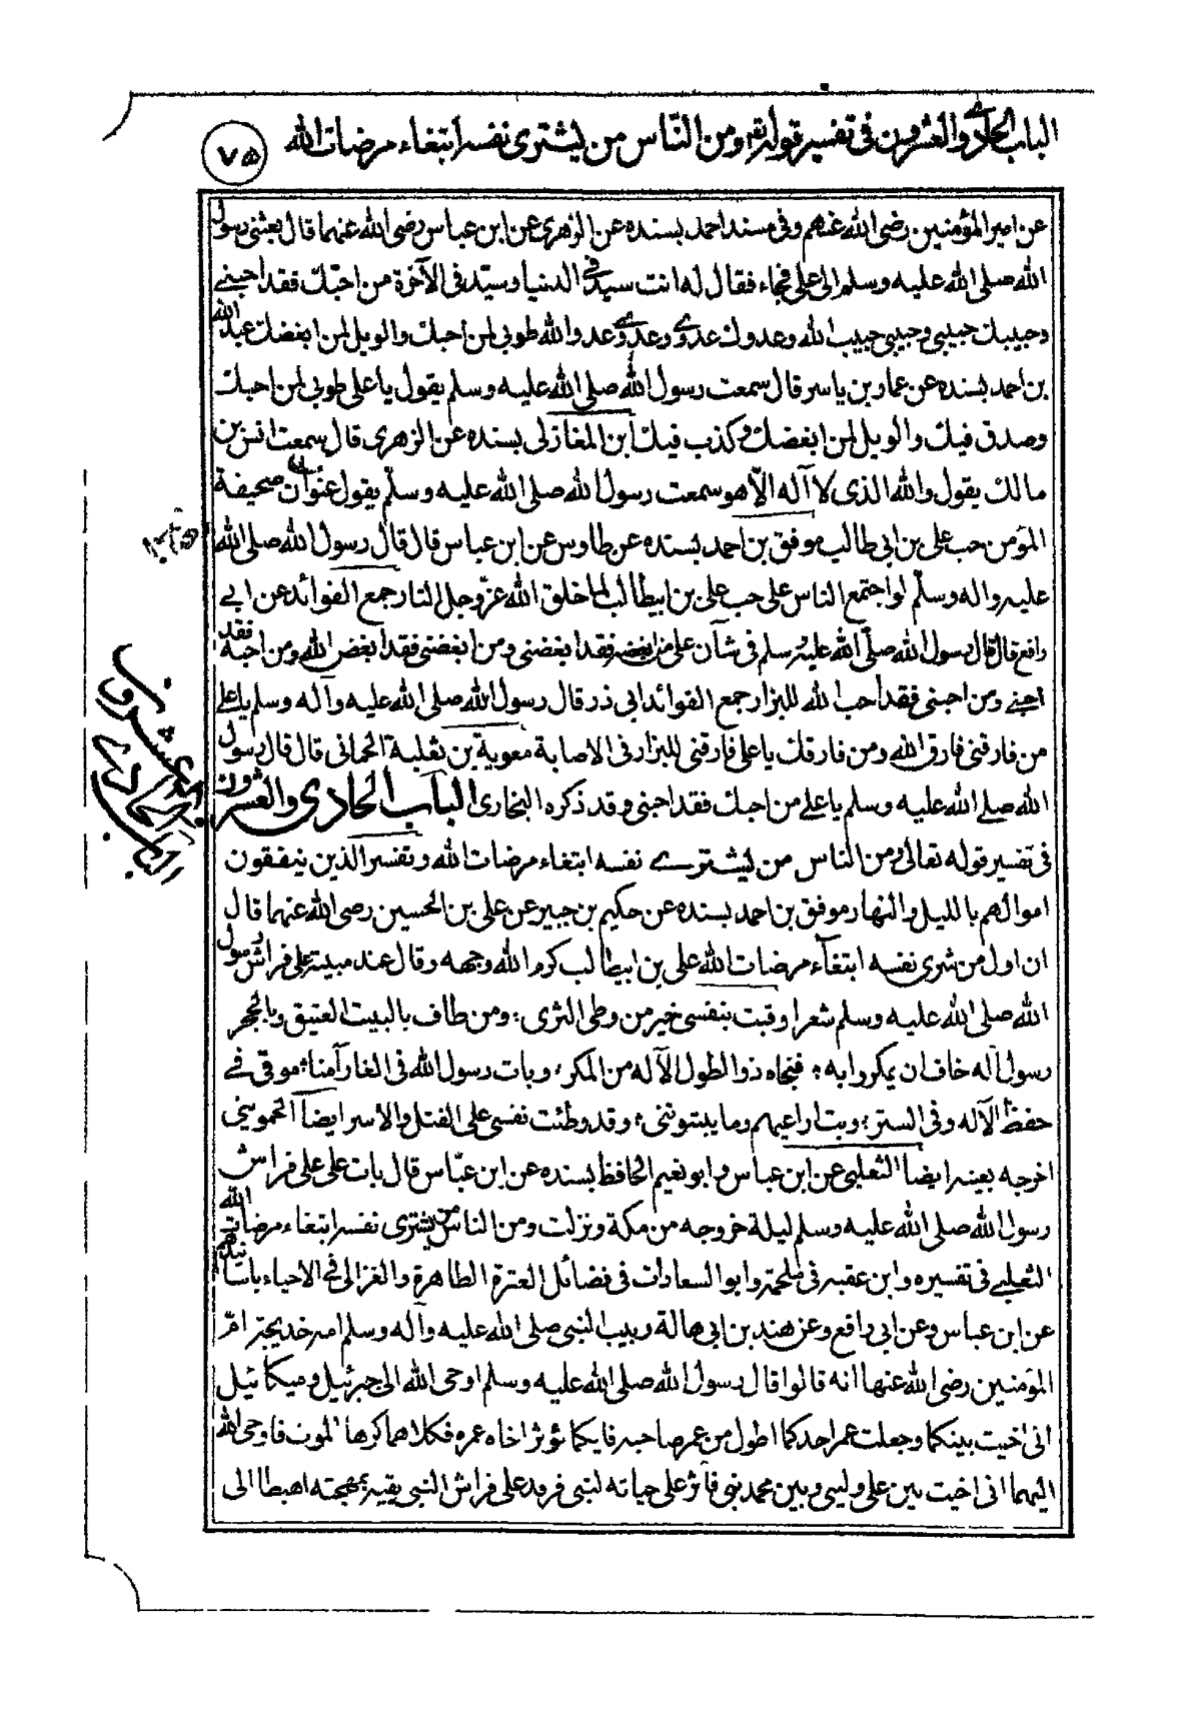 الباب الحادي والعشرون في تفسير قوله تعم ومن الناس من يشتري نفسه ابتغاء مرضات الله
٧٥
عن امير المؤمنين رضى الله عنهم وفى مسند احمد بسنده عن الزهرى عن ابن عباس رضى الله عنهما قال بعثنى رسول
الله صلى الله عليه وسلم الى على فجاء فقال له انت سيد فى الدنيا وسيد فى الآخرة من احبك فقد احبنى
وحبيبك حبيبى وحبيبى حبيب الله وعدوك عدوى وعدوى عدو الله طوبى لمن احبك والويل لمن ابغضك عبد الله
بن احمد بسنده عن عمار بن ياسر قال سمعت رسول الله صلى الله عليه وسلم يقول يا على طوبى لمن احبك
وصدق فيك والويل لمن ابغضك وكذب فيك ابن المغازلى بسنده عن الزهرى قال سمعت انس بن
مالك يقول والله الذى لا آله الا هو سمعت رسول الله صلى الله عليه وسلم يقول عنوان صحيفة
المؤمن حب على بن ابى طالب موفق بن احمد بسنده عن طاوس عن ابن عباس قال قال رسول الله صلى الله
عليه واله وسلم لو اجتمع الناس على حب على بن ابيطالب لما خلق الله عز وجل النار جمع الفوائد عن ابى
رافع قال قال رسول الله صلى الله عليه وسلم فى شأن على من ابغضه فقد ابغضنى ومن ابغضنى فقد ابغض الله ومن احبه فقد
احبنى ومن احبنى فقد احب الله للبزار جمع الفوائد ابى ذر قال رسول الله صلى الله عليه وآله وسلم يا على
من فارقنى فارق الله ومن فارقك يا على فارقنى للبزار فى الاصابة معوية بن ثعلبة الحمانى قال قال رسول
الله صلى الله عليه وسلم يا على من احبك فقد احبنى وقد ذكره البخارى الباب الحادى والعشرون
فى تفسير قوله تعالى ومن الناس من يشترى نفسه ابتغاء مرضات الله وتفسير الذين ينفقون
اموالهم بالليل والنهار موفق بن احمد بسنده عن حكيم بن جبير عن على بن الحسين رضى الله عنهما قال
ان اول من شرى نفسه ابتغآء مرضات الله على بن ابيطالب كرم الله وجهه وقال عند مبيته على فراش رسول
الله صلى الله عليه وسلم شعرا وقيت بنفسى خير من وطى الثرى ؛ ومن طاف بالبيت العتيق وبالحجر
رسول آله خاف ان يمكروا به ؛ فنجاه ذو الطول الآله من المكر ؛ وبات رسول الله فى الغار آمنا ؛ موقى فى
حفظ الآله وفى الستر ؛ وبت اراعيهم وما يبتوننى ؛ وقد وطئت نفسى على القتل والاسر ايضا الحموينى
اخرجه بعينه ايضا الثعلبى عن ابن عباس وابو نعيم الحافظ بسنده عن ابن عباس قال بات على على فراش
رسول الله صلى الله عليه وسلم ليلة خروجه من مكة ونزلت ومن الناس من يشترى نفسه ابتغاء مرضات الله
الثعلبى فى تفسيره وابن عقبه فى ملحمته وابو السعادات فى فضائل العترة الطاهرة والغزالى فى الاحياء باسانيدهم
عن ابن عباس وعن ابى رافع وعن هند بن ابى هالة ربيب النبى صلى الله عليه وآله وسلم امه خديجة ام
المؤمنين رضى الله عنها انه قالوا قال رسول الله صلى الله عليه وسلم اوحى الله الى جبرئيل وميكائيل
انى اخيت بينكما وجعلت عمر احدكما اطول من عمر صاحبه فايكما يؤثر اخاه عمره فكلاهما كرها الموت فاوحى الله
اليهما انى اخيت بين على وليى وبين محمد نبى فآثر على حياته لنبى فرقد على فراش النبى يقيه بمهجته اهبطا الى
الباب الحادى وعشرون